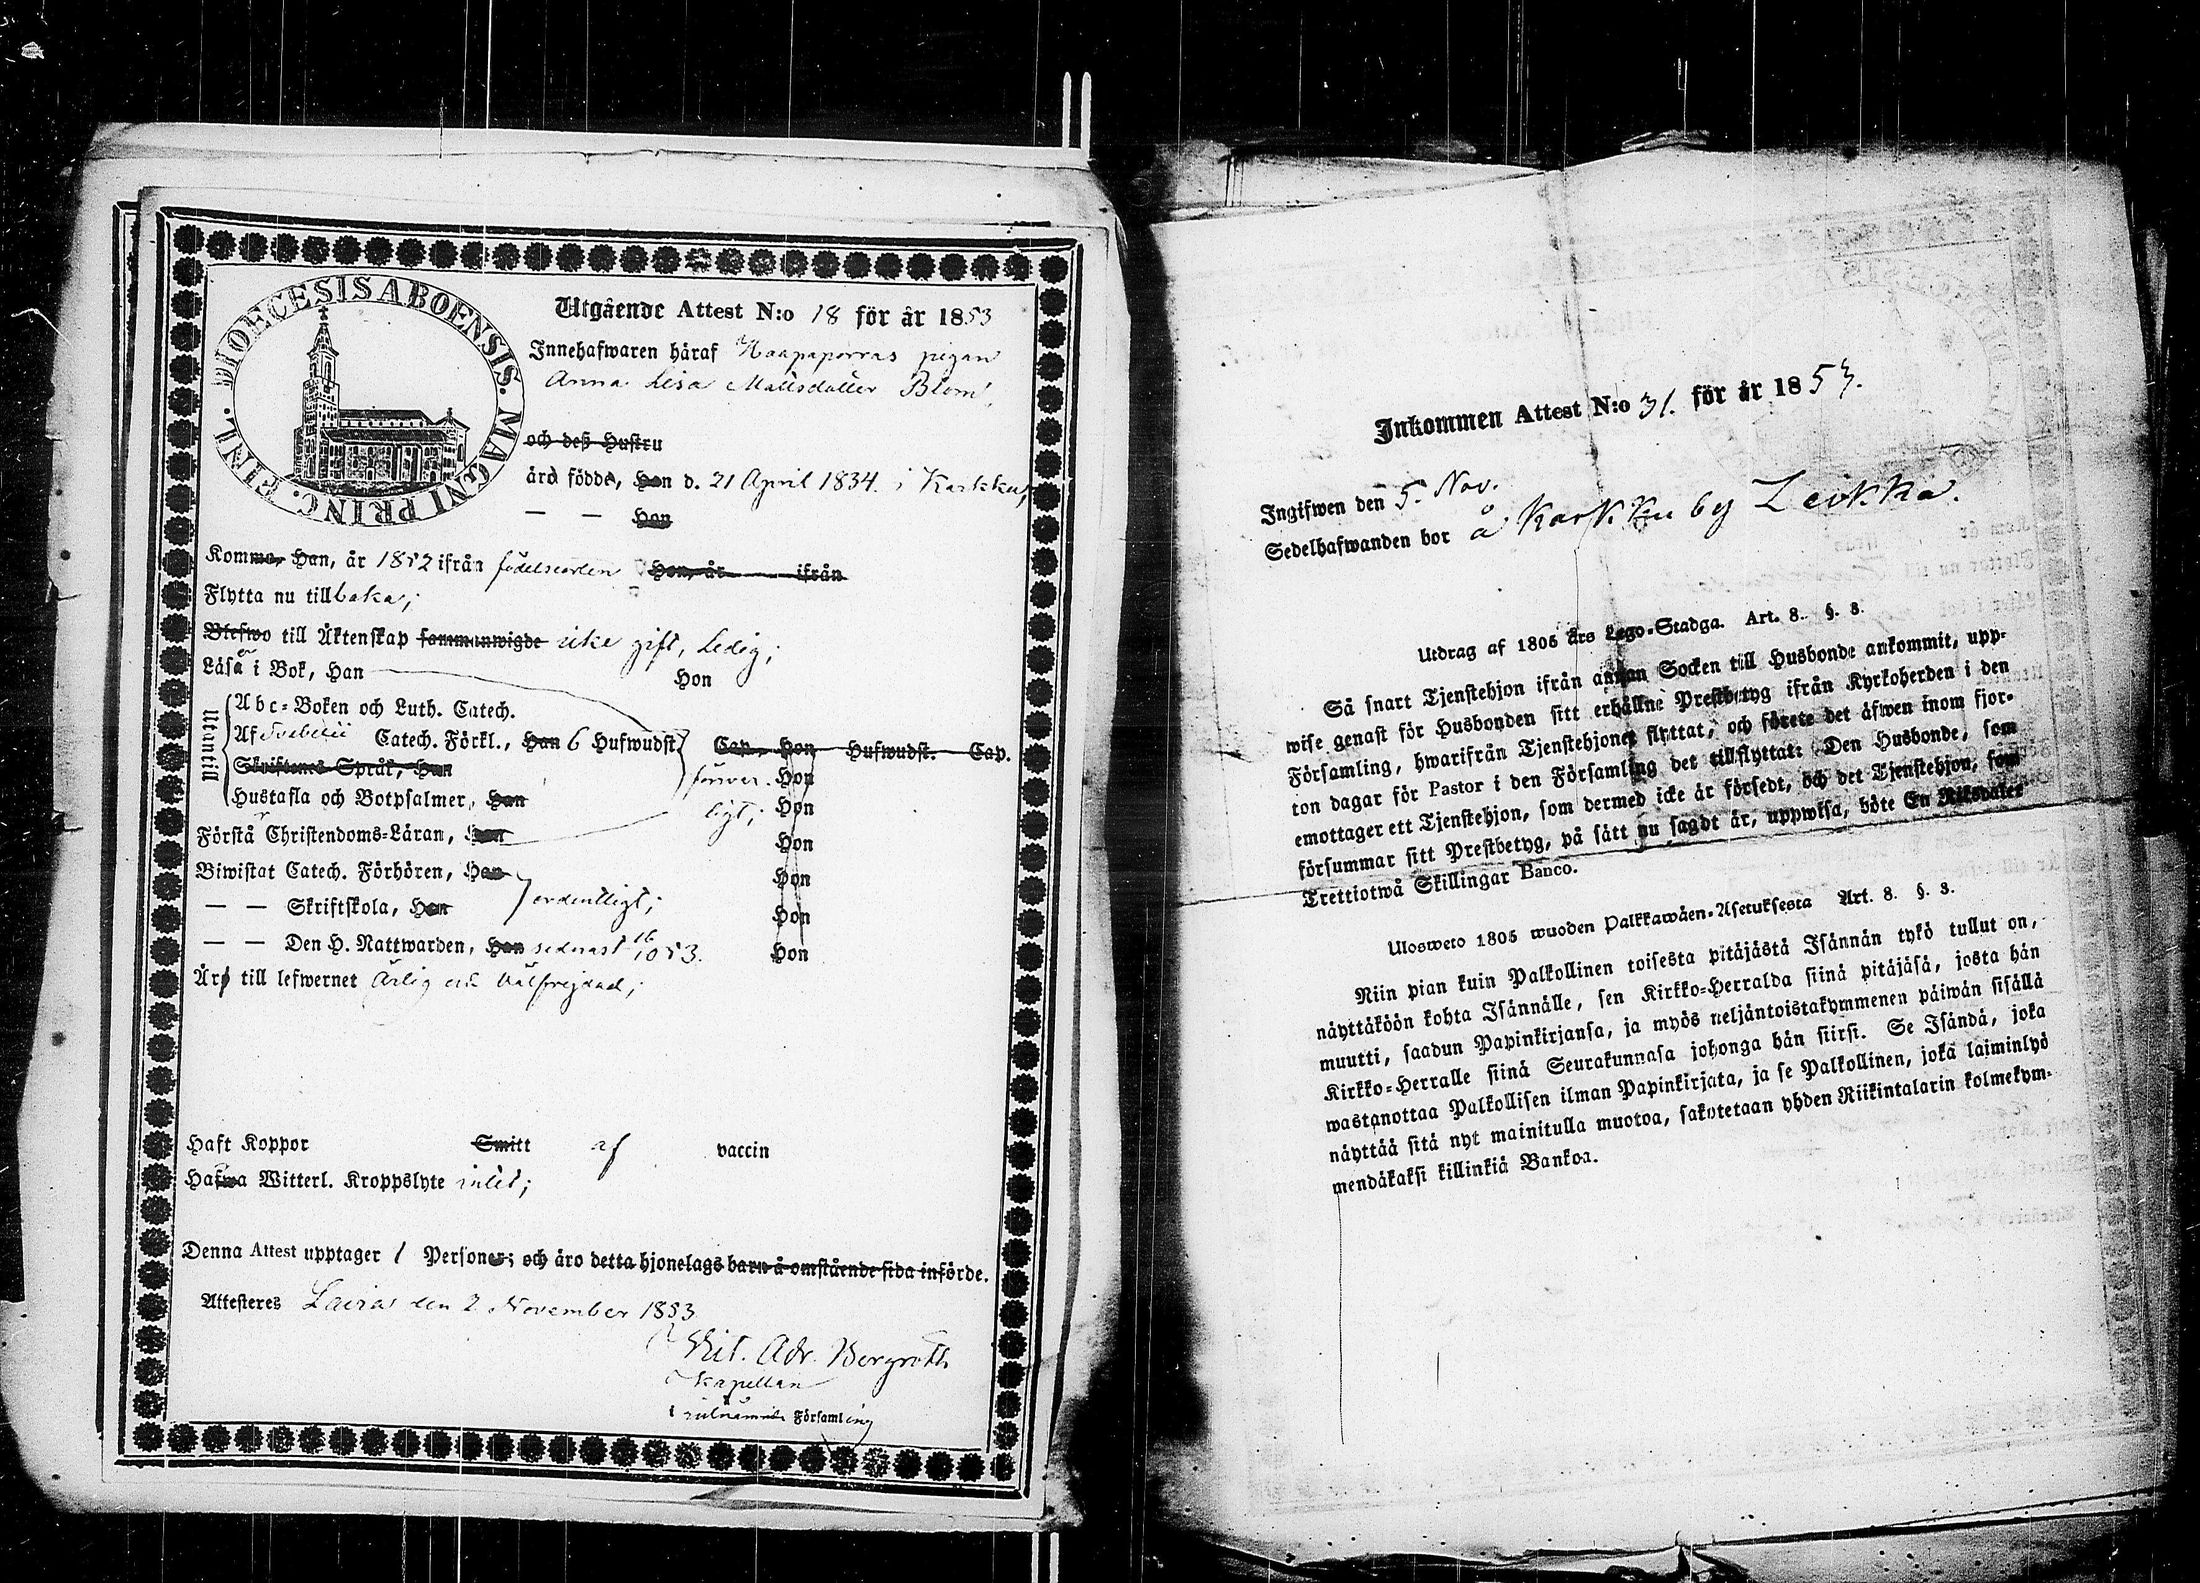 DIOECESIS ABOENSIS. MAGNI PRINC. FINL.
Utgående Attest N:o 18 för år 1853
Innehafwaren häraf Haapaporras pigan
Anna Lisa Mattsdotter Blom,
och deß Hustru
äro födde, Han d. 21 April 1834. i Karkku,
— — Hon
Komma, Han, år 1852 ifrån födelseorten Hon, år ifrån
Flytta nu tillbaka;
Blefwo till Äktenskap sammanwigde icke gift, Ledig;
Läsa i Bok, Han Hon
Utantill
Abc-Boken och Luth. Catech.
Af Svebelii Catech. Förkl., Han 6 Hufwudst. Cap. Hon Hufwudst. Cap.
Skriftenes Språk, Han Hon
Hustafla och Botpsalmer, Han Hon
Förstå Christendoms-Läran, Han Hon
Biwistat Catech. Förhören, Han Hon
— — Skriftskola, Han ordentligt; Hon
— — Den H. Nattwarden, Han sednast 16/10 53. Hon
Äro till lefwernet Ärlig och Välfrejdad;
Haft Koppor Smitt af vaccin
Hafwa Witterl. Kroppslyte intet;
Denna Attest upptager 1 Personer; och äro detta hjonelags barn å omstående sida införde.
Attesteres Lavia den 2 November 1853
Vit. Adr. Bergroth
Kapellan
i Församling
Inkommen Attest N:o 31. för år 1853.
Ingifwen den 5. Nov.
Sedelhafwanden bor å Karkku by Leikka.
Utdrag af 1805 års Lego-Stadga. Art. 8. §. 3.
Så snart Tjenstehjon ifrån annan Socken till Husbonde ankommit, upp-
wise genast för Husbonden sitt erhållne Prestbetyg ifrån Kyrkoherden i den
Församling, hwarifrån Tjenstehjonet flyttat, och förete det äfwen inom fjor-
ton dagar för Pastor i den Församling det tillflyttat: Den Husbonde, som
emottager ett Tjenstehjon, som dermed icke är försedt, och det Tjenstehjon, som
försummar sitt Prestbetyg, på sätt nu sagdt är, uppwisa, böte En Riksdaler
Trettiotwå Skillingar Banco.
Ulosweto 1805 wuoden Palkkawäen-Asetuksesta Art. 8. §. 3.
Niin pian kuin Palkollinen toisesta pitäjästä Isännän tykö tullut on,
näyttäköön kohta Isännälle, sen Kirkko-Herralda siinä pitäjäsä, josta hän
muutti, saadun Papinkirjansa, ja myös neljäntoistakymmenen päiwän sisällä
Kirkko-Herralle siinä Seurakunnasa johonga hän siirsi. Se Isändä, joka
wastanottaa Palkollisen ilman Papinkirjata, ja se Palkollinen, joka laiminlyö
näyttää sitä nyt mainitulla muotoa, sakotetaan yhden Riikintalarin kolmekym-
mendäkaksi killinkiä Bankoa.